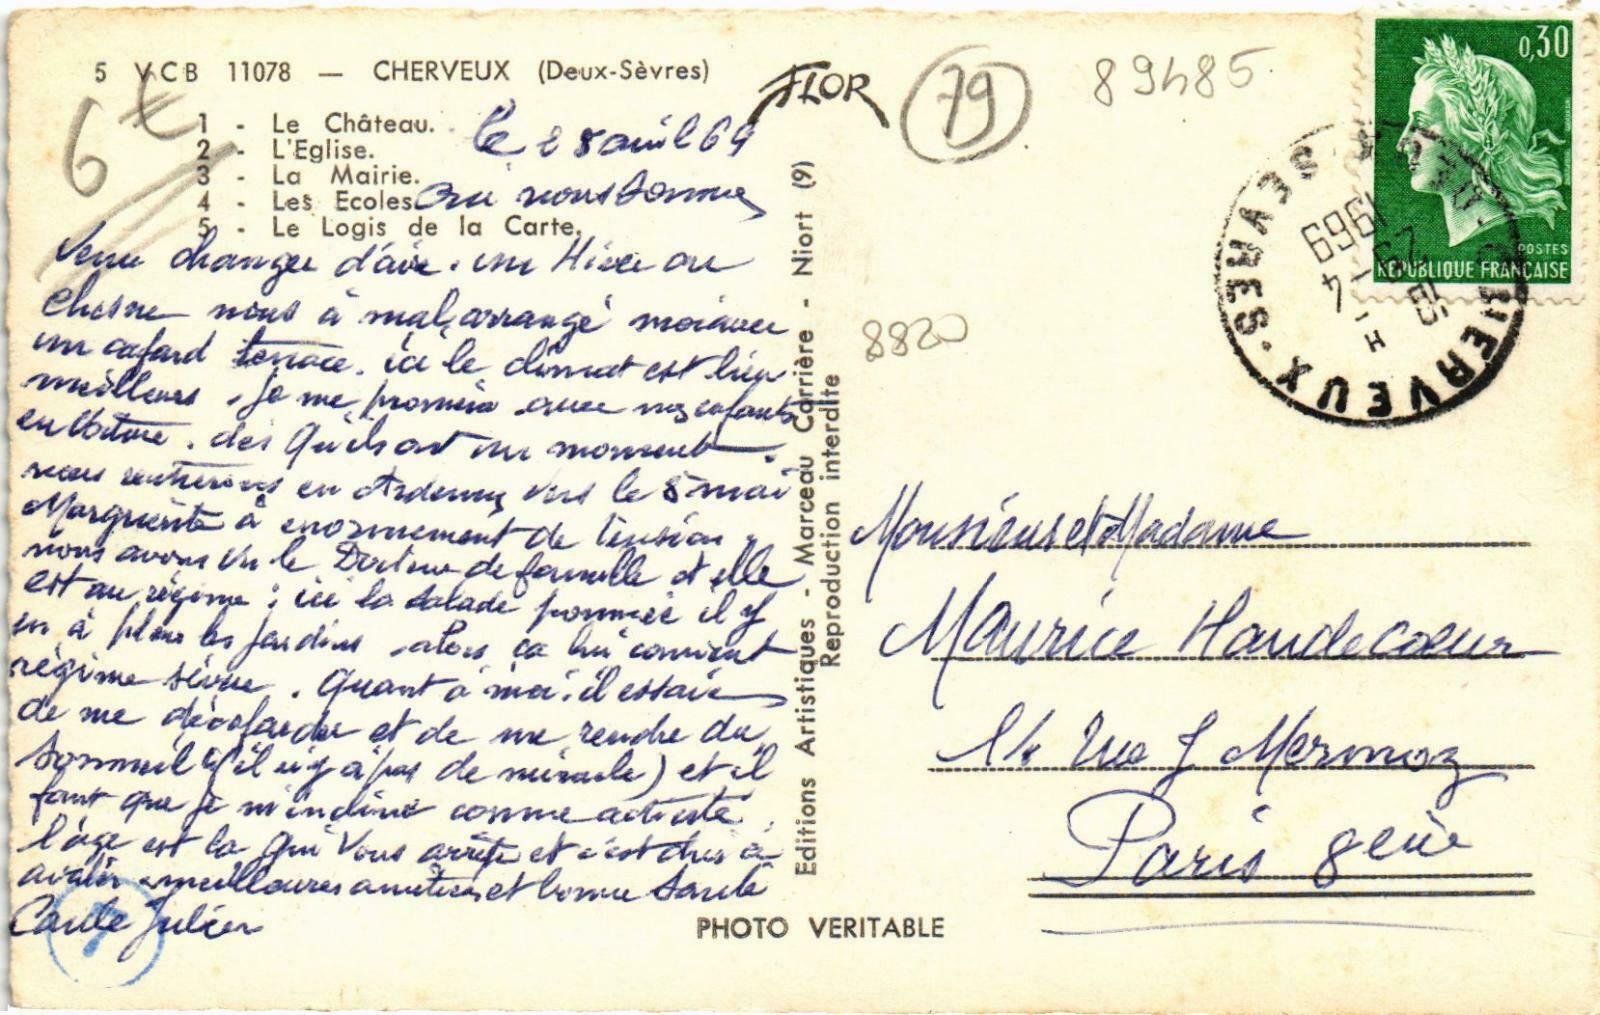 5 VCB 11078 — CHERVEUX (Deux-Sèvres)
1 - Le Château.
2 - L'Eglise.
3 - La Mairie.
4 - Les Ecoles
5 - Le Logis de la Carte.
6 €
FLOR
79
89485
8820
le 28 avril 69
Oui nous sommes
venu changer d'air. un Hiver au
Chesne nous à mal arrangé moi avec
un cafard tenace. ici le climat est bien
meilleur. je me promène avec mes enfants
en voiture. dès qu'ils ont un moment.
nous rentrerons en Ardennes vers le 8 mai
Marguerite à énormement de tension
nous avons vu le Docteur de famille et elle
est au régime : ici la salade pommée il y
en à plein les jardins alors ça lui convient
régime sévère. Quant à moi. il essaie
de me décafarder et de me rendre du
sommeil (il n'y à pas de miracle) et il
faut que je m'incline comme
l'âge est la qui vous arrête et c'est dur à
avaler meilleures amitiés et bonne santé
Julien
Editions Artistiques - Marceau Carrière - Niort (9)
Reproduction interdite
PHOTO VERITABLE
0,30
POSTES
REPUBLIQUE FRANÇAISE
CHERVEUX · DEUX SEVRES
16 H
29 - 4
1969
Monsieur et Madame
Maurice Haudecoeur
14 rue J Mermoz
Paris 8eme
7